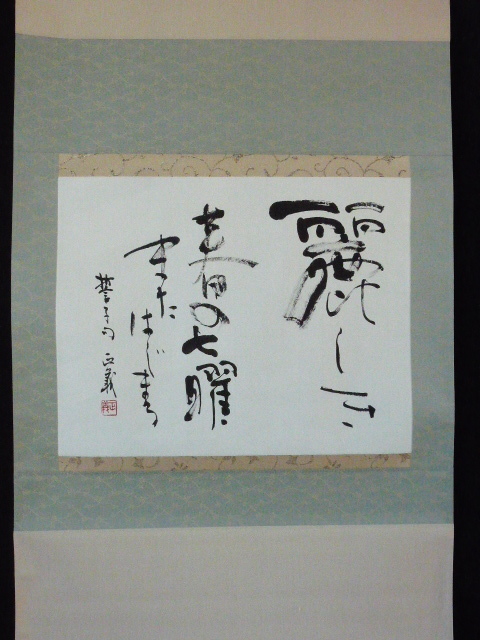 麗しき
春の七曜
またはじまる
誓子句 正義